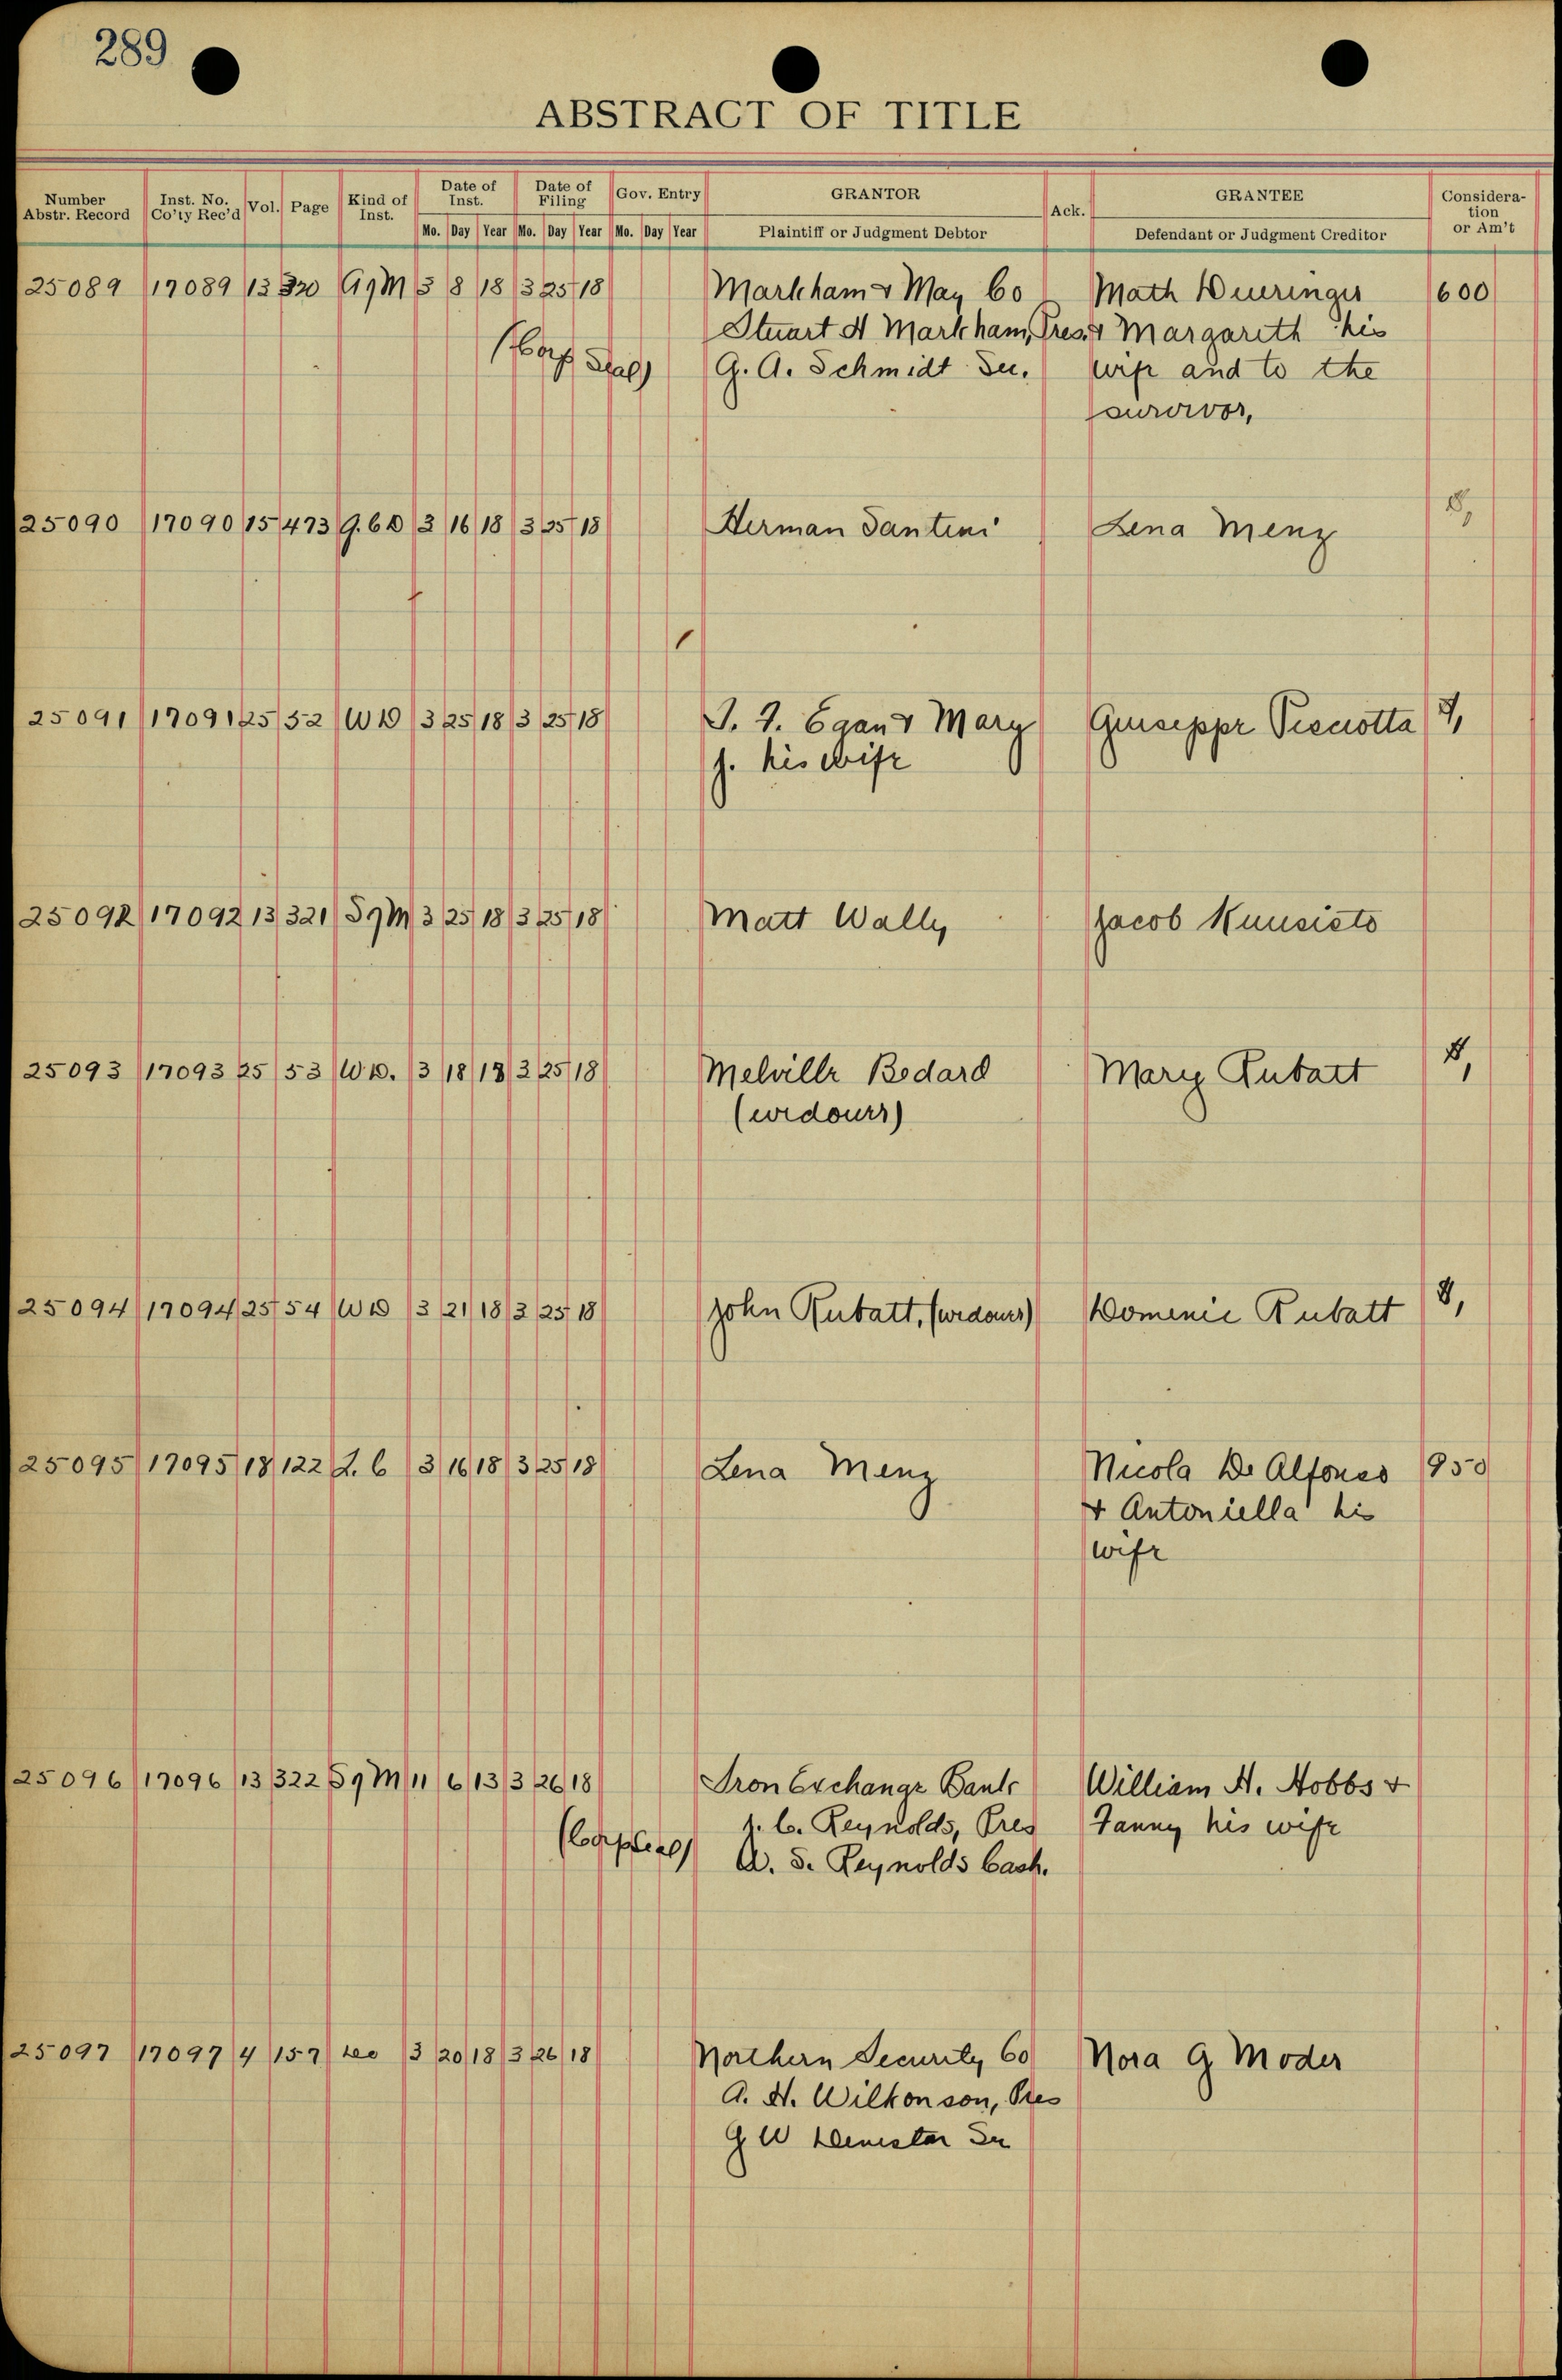 289
ABSTRACT OF TITLE
Number Abstr. Record Inst. No. Co'ty Rec'd Vol. Page Kind of Inst. Date of Inst. Date of Filing Gov. Entry GRANTOR Ack. GRANTEE Considera-tion or Am't
Mo. Day Year Mo. Day Year Mo. Day Year Plaintiff or Judgment Debtor Defendant or Judgment Creditor
25089 17089 13 320 3 8 18 3 25 18 Markham & May Co Math 600
Stuart H Markham, Pres. & Margareth his
(Corp Seal) G. A. Schmidt Sec. wife and to the
survivor,
25090 17090 15 473 3 16 18 3 25 18 Herman Santini Lena Menz
25091 17091 25 52 WD 3 25 18 3 25 18 Egan & Mary Guiseppe
J. his wife
25092 17092 13 321 S9M 3 25 18 3 25 18 Matt Wally Jacob Kuusisto
25093 17093 25 53 W.D. 3 18 18 3 25 18 Melville Bedard Mary Rubatt
(widower)
25094 17094 25 54 WD 3 21 18 3 25 18 John Rubatt, (widower) Domenic Rubatt
25095 17095 18 122 L. C 3 16 18 3 25 18 Lena Menz Nicola De Alfonso 950
& Antoniella his
wife
25096 17096 13 322 S9M 11 6 13 3 26 18 Iron Exchange Bank William H. Hobbs &
C. Reynolds, Pres Fanny his wife
(Corp Seal) A. S. Reynolds Cash.
25097 17097 4 157 3 20 18 3 26 18 Northern Security Co Nora G Moder
A. H. Wilkonson, Pres
G W Sec